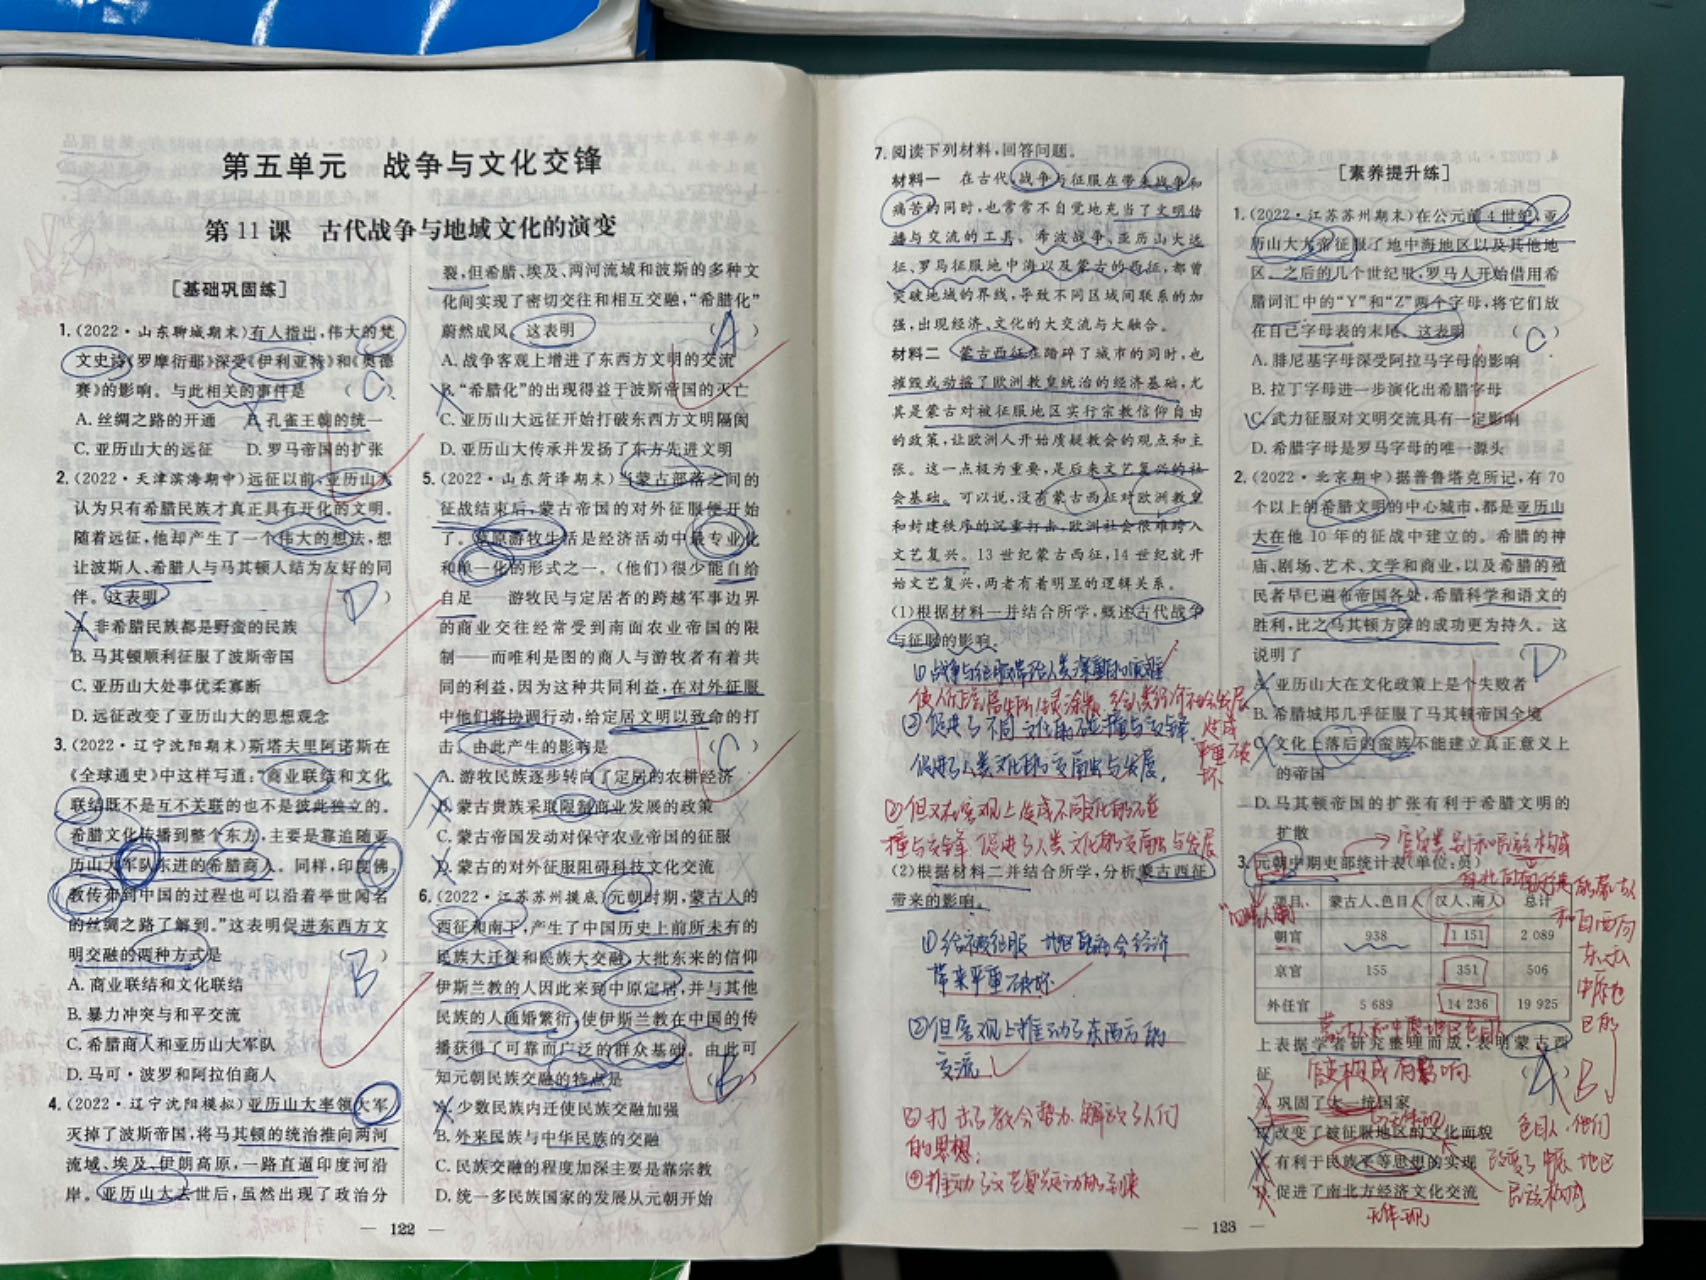 第五单元 战争与文化交锋
第11课 古代战争与地域文化的演变
[基础巩固练]
1.(2022·山东聊城期末)有人指出,伟大的梵
文史诗《罗摩衍那》深受《伊利亚特》和《奥德
赛》的影响。与此相关的事件是 ( C )
A.丝绸之路的开通 B.孔雀王朝的统一
C.亚历山大的远征 D.罗马帝国的扩张
2.(2022·天津滨海期中)远征以前,亚历山大
认为只有希腊民族才真正具有开化的文明。
随着远征,他却产生了一个伟大的想法,想
让波斯人、希腊人与马其顿人结为友好的同
伴。这表明 ( D )
A.非希腊民族都是野蛮的民族
B.马其顿顺利征服了波斯帝国
C.亚历山大处事优柔寡断
D.远征改变了亚历山大的思想观念
3.(2022·辽宁沈阳期末)斯塔夫里阿诺斯在
《全球通史》中这样写道:“商业联结和文化
联结既不是互不关联的也不是彼此独立的。
希腊文化传播到整个东方,主要是靠追随亚
历山大军队东进的希腊商人。同样,印度佛
教传布到中国的过程也可以沿着举世闻名
的丝绸之路了解到。”这表明促进东西方文
明交融的两种方式是 ( B )
A.商业联结和文化联结
B.暴力冲突与和平交流
C.希腊商人和亚历山大军队
D.马可·波罗和阿拉伯商人
4.(2022·辽宁沈阳模拟)亚历山大率领大军
灭掉了波斯帝国,将马其顿的统治推向两河
流域、埃及、伊朗高原,一路直逼印度河沿
岸。亚历山大去世后,虽然出现了政治分
裂,但希腊、埃及、两河流域和波斯的多种文
化间实现了密切交往和相互交融,“希腊化”
蔚然成风。这表明 ( A )
A.战争客观上增进了东西方文明的交流
B.“希腊化”的出现得益于波斯帝国的灭亡
C.亚历山大远征开始打破东西方文明隔阂
D.亚历山大传承并发扬了东方先进文明
5.(2022·山东菏泽期末)当蒙古部落之间的
征战结束后,蒙古帝国的对外征服便开始
了。草原游牧生活是经济活动中最专业化
和单一化的形式之一。(他们)很少能自给
自足——游牧民与定居者的跨越军事边界
的商业交往经常受到南面农业帝国的限
制——而唯利是图的商人与游牧者有着共
同的利益,因为这种共同利益,在对外征服
中他们将协调行动,给定居文明以致命的打
击。由此产生的影响是 ( C )
A.游牧民族逐步转向了定居的农耕经济
B.蒙古贵族采取限制商业发展的政策
C.蒙古帝国发动对保守农业帝国的征服
D.蒙古的对外征服阻碍科技文化交流
6.(2022·江苏苏州摸底)元朝时期,蒙古人的
西征和南下,产生了中国历史上前所未有的
民族大迁徙和民族大交融,大批东来的信仰
伊斯兰教的人因此来到中原定居,并与其他
民族的人通婚繁衍,使伊斯兰教在中国的传
播获得了可靠而广泛的群众基础。由此可
知元朝民族交融的特点是 ( B )
A.少数民族内迁使民族交融加强
B.外来民族与中华民族的交融
C.民族交融的程度加深主要是靠宗教
D.统一多民族国家的发展从元朝开始
— 122 —
7.阅读下列材料,回答问题。
材料一 在古代,战争与征服在带来战争和
痛苦的同时,也常常不自觉地充当了文明传
播与交流的工具。希波战争、亚历山大远
征、罗马征服地中海以及蒙古的西征,都曾
突破地域的界线,导致不同区域间联系的加
强,出现经济、文化的大交流与大融合。
材料二 蒙古西征在踏碎了城市的同时,也
摧毁或动摇了欧洲教皇统治的经济基础,尤
其是蒙古对被征服地区实行宗教信仰自由
的政策,让欧洲人开始质疑教会的观点和主
张。这一点极为重要,是后来文艺复兴的社
会基础。可以说,没有蒙古西征对欧洲教皇
和封建秩序的沉重打击,欧洲社会很难跨入
文艺复兴。13世纪蒙古西征,14世纪就开
始文艺复兴,两者有着明显的逻辑关系。
(1)根据材料一并结合所学,概述古代战争
与征服的影响。
①战争与征服带给人类深重的灾难
②促进了不同文化的碰撞与交锋 造成
促进了人类文化的交流与发展。 严重破
坏
②但又在客观上促成不同文化的碰
撞与交锋 促进了人类文化的交流与发展
(2)根据材料二并结合所学,分析蒙古西征
带来的影响。
①给被征服地区的社会经济
带来严重破坏
②但客观上推动了东西方的
交流
③打击了教会势力,解放了人们
的思想;
④推动了文艺复兴运动的到来
[素养提升练]
1.(2022·江苏苏州期末)在公元前4世纪,亚
历山大大帝征服了地中海地区以及其他地
区。之后的几个世纪里,罗马人开始借用希
腊词汇中的“Y”和“Z”两个字母,将它们放
在自己字母表的末尾。这表明 ( C )
A.腓尼基字母深受阿拉马字母的影响
B.拉丁字母进一步演化出希腊字母
C.武力征服对文明交流具有一定影响
D.希腊字母是罗马字母的唯一源头
2.(2022·北京期中)据普鲁塔克所记,有70
个以上的希腊文明的中心城市,都是亚历山
大在他10年的征战中建立的。希腊的神
庙、剧场、艺术、文学和商业,以及希腊的殖
民者早已遍布帝国各处,希腊科学和语文的
胜利,比之马其顿方阵的成功更为持久。这
说明了 ( D )
A.亚历山大在文化政策上是个失败者
B.希腊城邦几乎征服了马其顿帝国全境
C.文化上落后的蛮族不能建立真正意义上
的帝国
D.马其顿帝国的扩张有利于希腊文明的
扩散
3.元朝中期吏部统计表(单位:员)
项目 蒙古人、色目人 汉人、南人 总计
朝官 938 1 151 2 089
京官 155 351 506
外任官 5 689 14 236 19 925
上表据学者研究整理而成,表明蒙古西
征 ( A ) B
A.巩固了大一统国家
B.改变了被征服地区的文化面貌
C.有利于民族平等思想的实现
D.促进了南北方经济文化交流
色目人,他们
改变了中原地区
民族构成
未体现
— 123 —